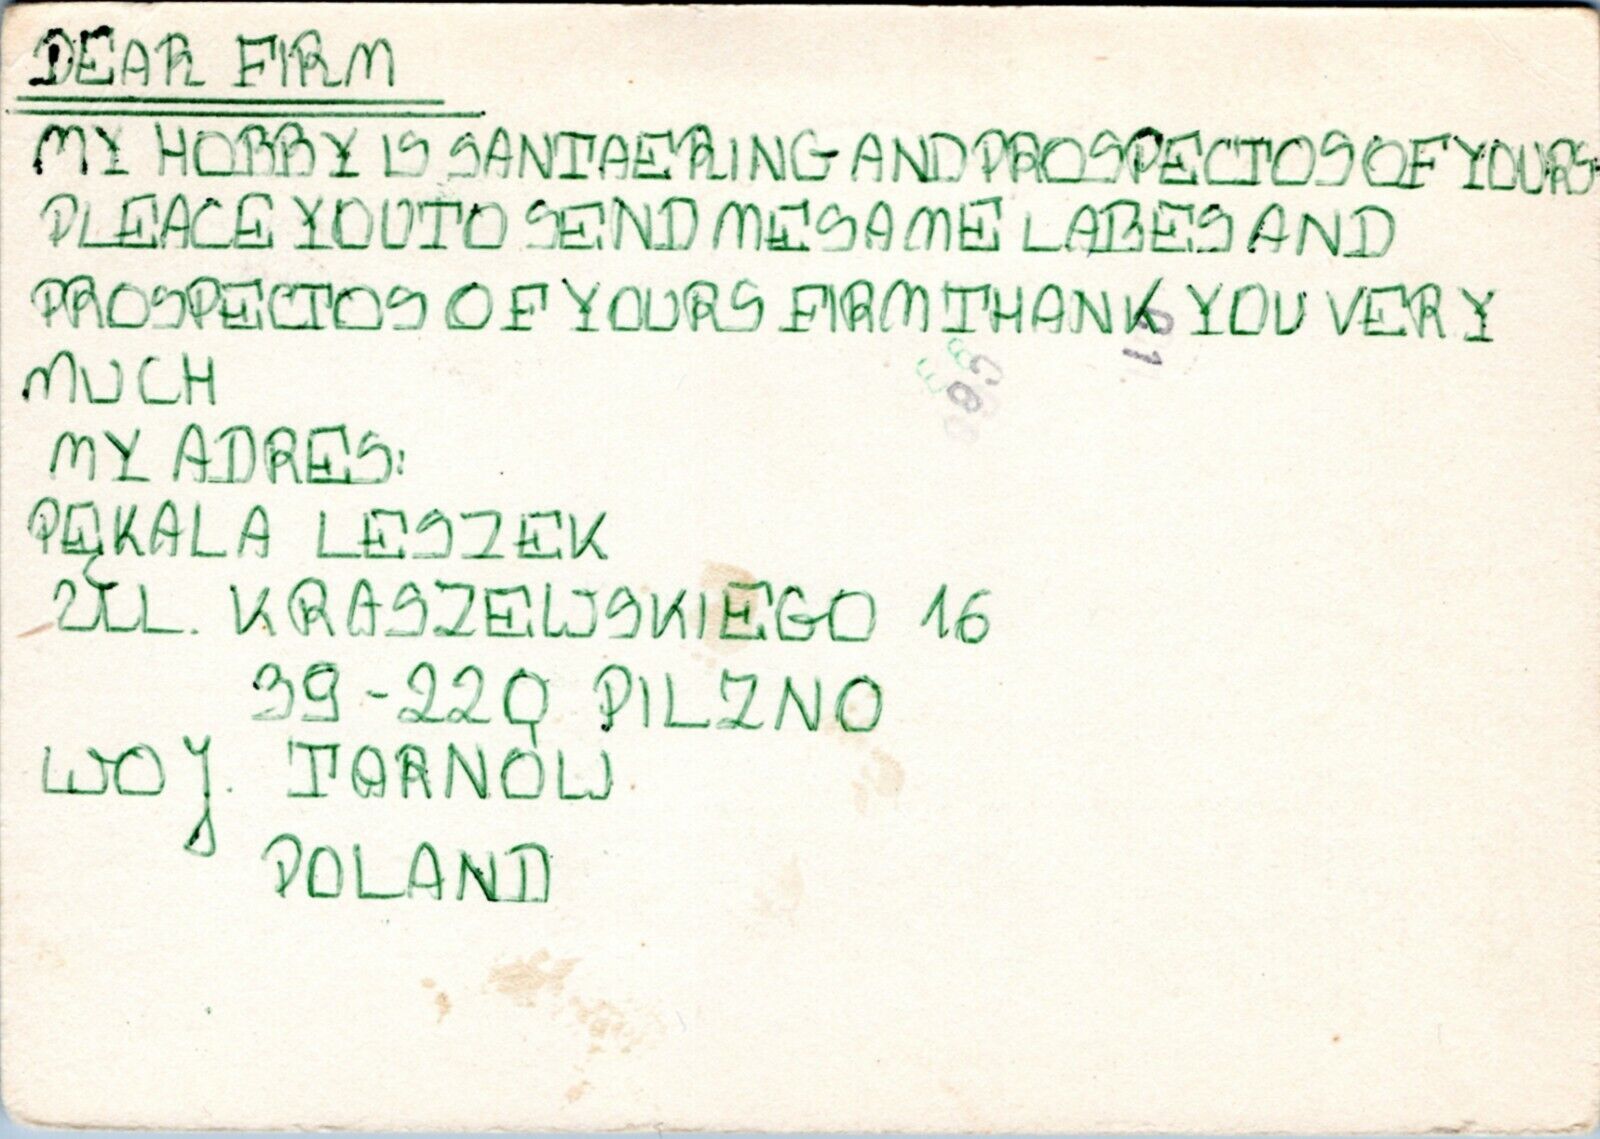 DEAR FIRM
MY HOBBY IS SANTAERING AND PROSPECTOS OF YOURS
PLEACE YOU TO SEND ME SAME LABES AND
PROSPECTOS OF YOURS FIRM THANK YOU VERY
MUCH
MY ADRES:
PĘKALA LESZEK
UL. KRASZEWSKIEGO 16
39-220 PILZNO
WOJ. TARNÓW
POLAND